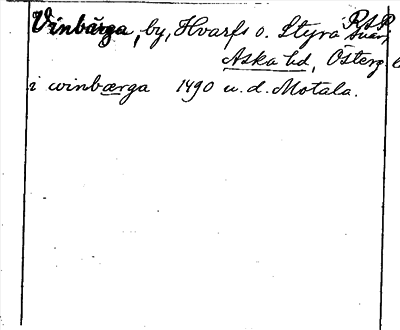 Vinbärga, by, Hvarfs o. Styra
R.A.P.
Aska hd, Österg.
i winbærga 1490 u. d. Motala.